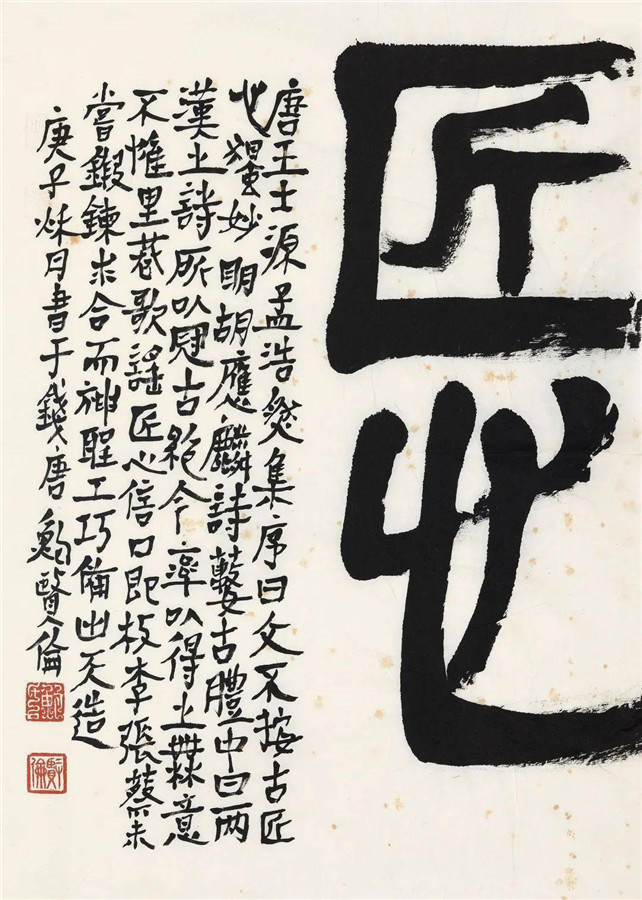 匠心
唐王士源孟浩然集序曰文不按古匠
心獨妙明胡應麟詩藪古體中曰兩
漢之詩所以冠古絕今率以得之無意
不惟里巷歌謠匠心信口即枚李張蔡未
嘗鍛鍊求合而神聖工巧備出天造
庚子秋月書于錢唐鮑賢倫
賢倫